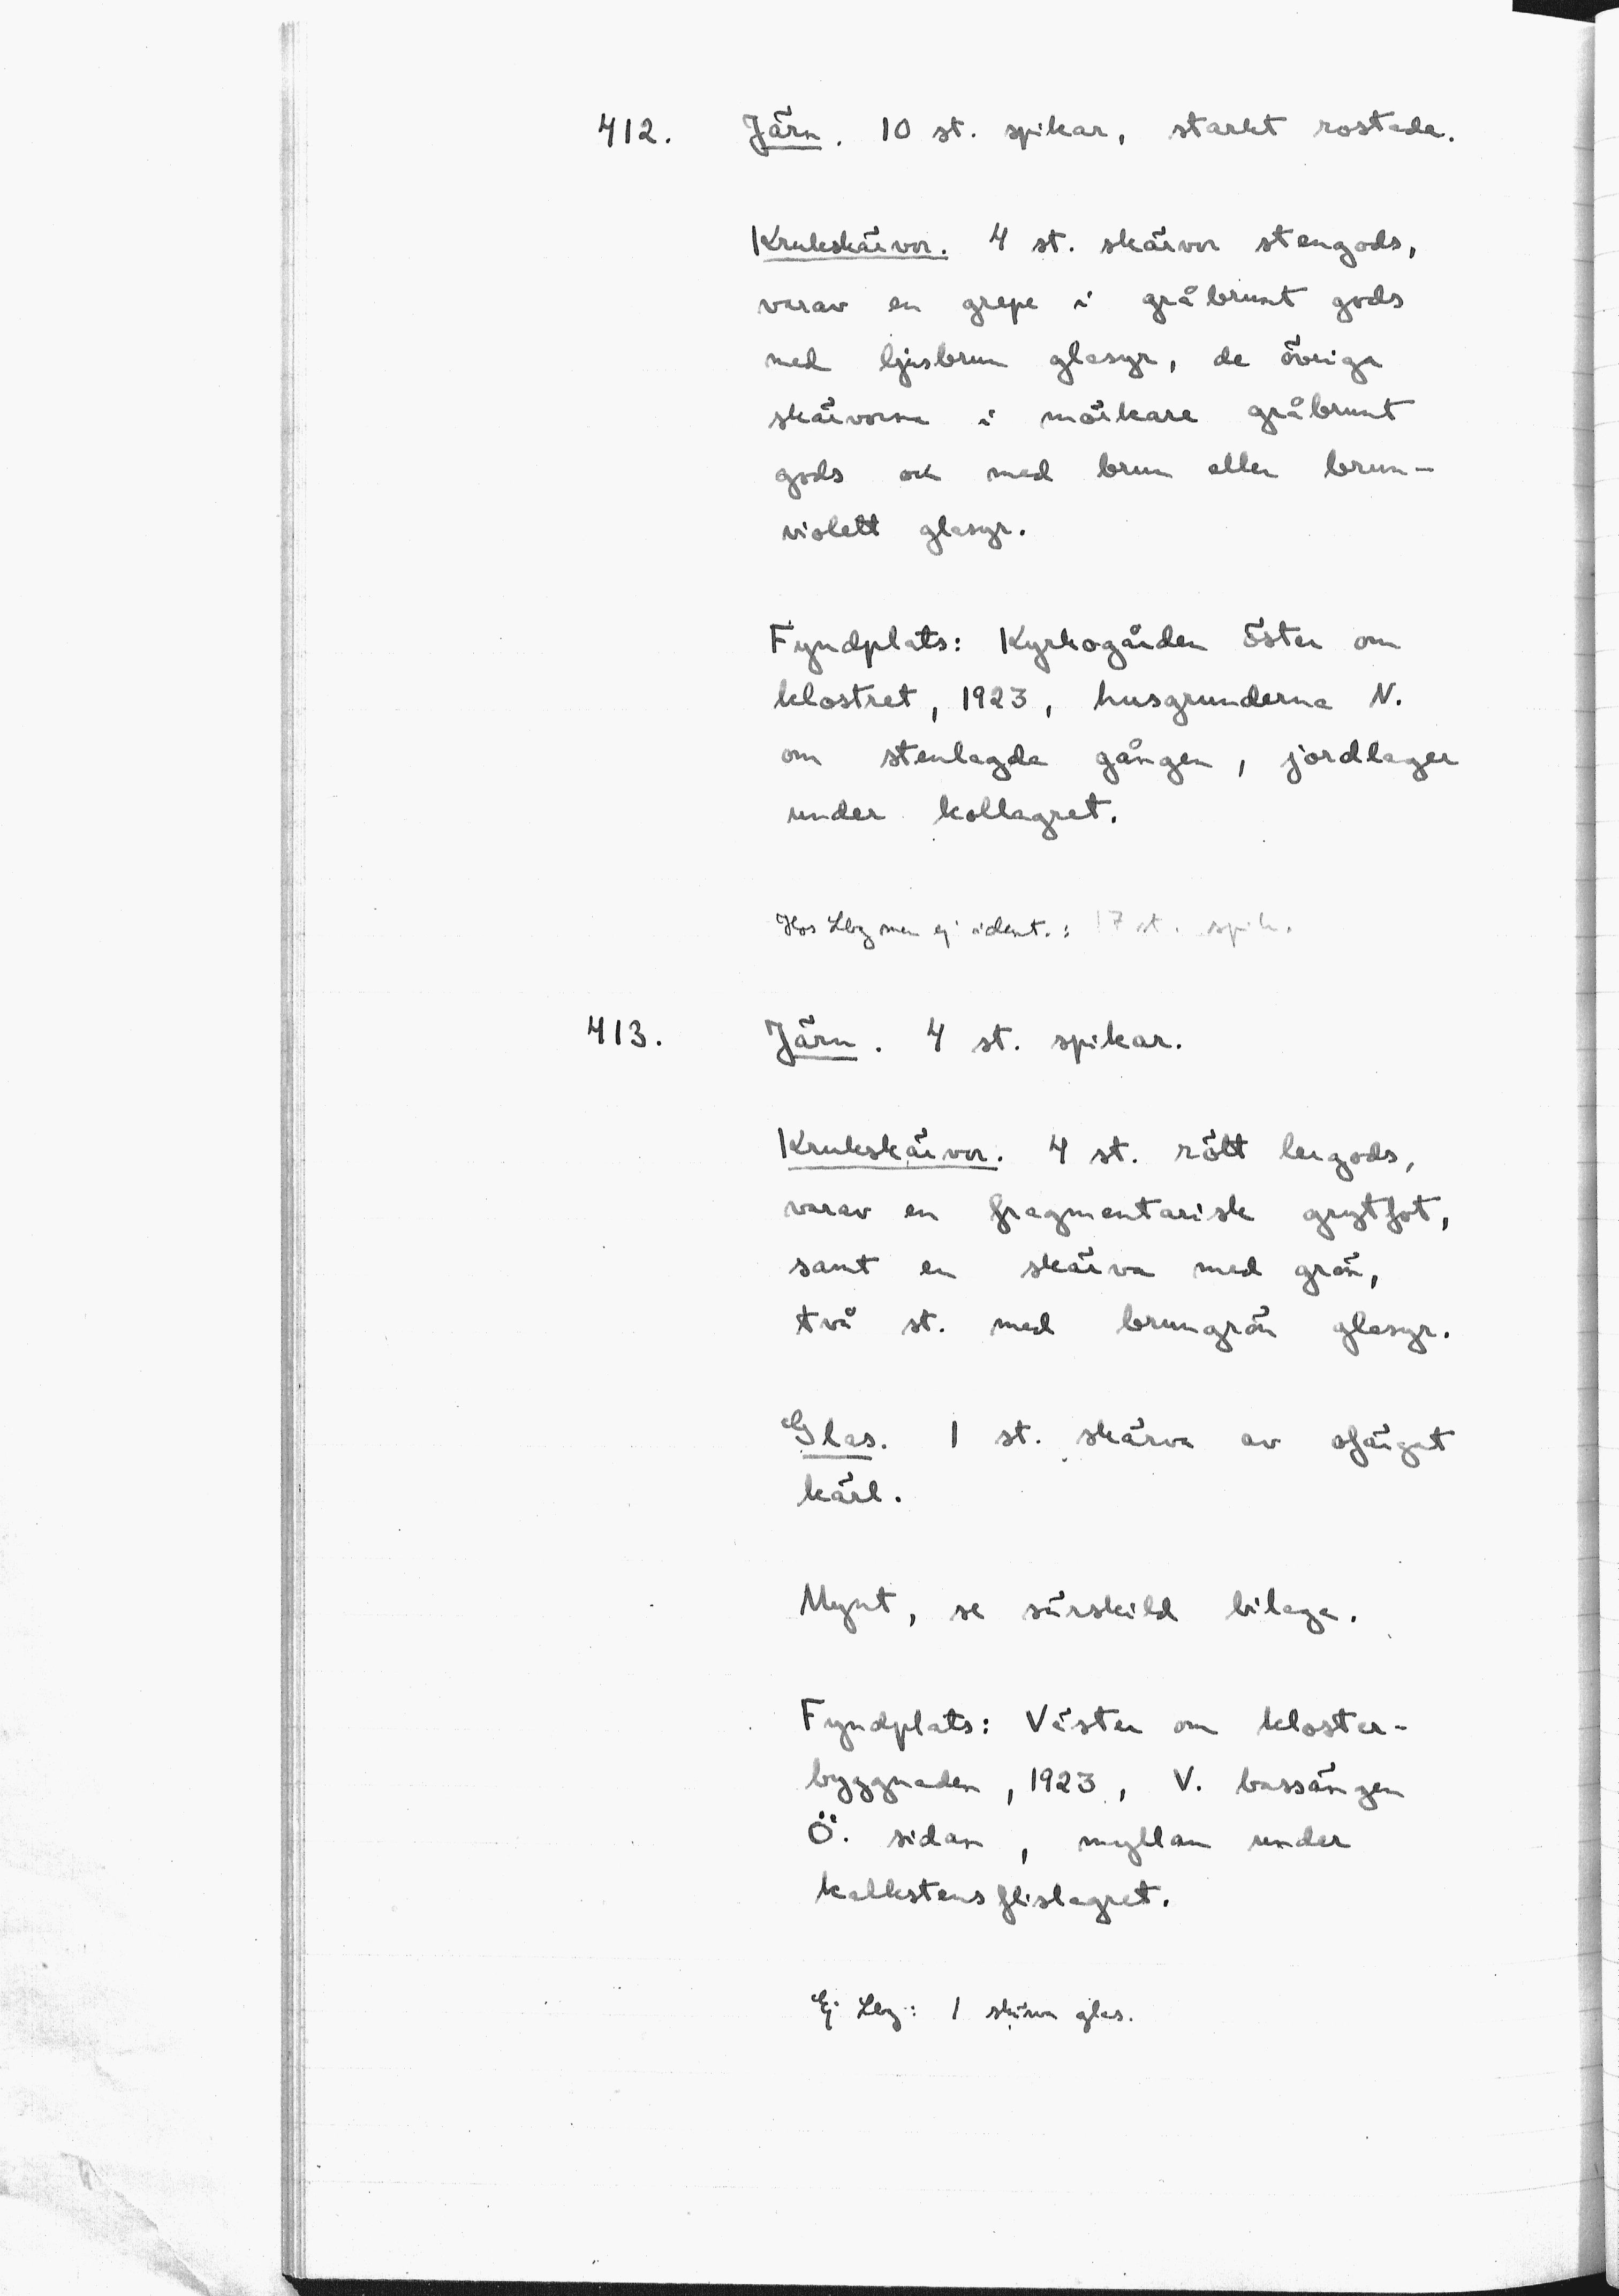 412. Järn. 10 st. spikar, starkt rostade.
Krukskärvor. 4 st. skärvor stengods,
varav en grepe i gråbrunt gods
med ljusbrun glasyr, de övriga
skärvorna i mörkare gråbrunt
gods och med brun eller brun-
violett glasyr.
Fyndplats: Kyrkogården öster om
klostret, 1923, husgrunderna N.
om stenlagda gången, jordlager
under kollagret.
Hos Lbg men ej ident.: 17 st. spik.
413. Järn. 4 st. spikar.
Krukskärvor. 4 st. rött lergods,
varav en fragmentarisk grytfot,
samt en skärva med grön,
två st. med brungrön glasyr.
Glas. 1 st. skärva av ofärgat
kärl.
Mynt, se särskild bilaga.
Fyndplats: Väster om kloster-
byggnaden, 1923, V. bassängen
Ö. sidan, myllan under
kalkstensflislagret.
Ej Lbg: 1 skärva glas.